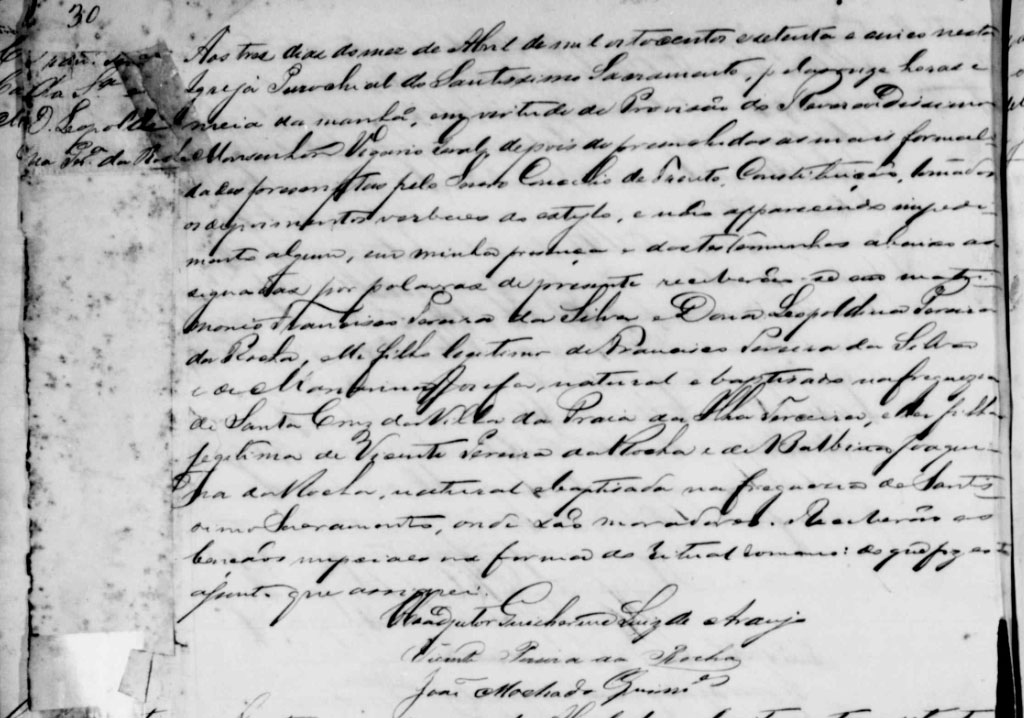 30
D. Leopoldi
na Per.ª da Rocha
Aos tres dias do mez de Abril de mil oitocentos e setenta e cinco nesta
Igreja Parochial do Santissimo Sacramento, pelas onze horas e
meia da manhã, em virtude de Provisão do Reverendissimo
Monsenhor Vigario Geral, depois de preenchidas as mais formali-
dades prescriptas pelo Sacro Concilio de Trento, Constituição, tomados
os depoimentos verbaes do estylo, e não apparecendo impedi-
mento algum, em minha presença e das testemunhas abaixo as-
signadas por palavras de presente receberão-se em matri-
monio Francisco Pereira da Silva e Dona Leopoldina Pereira
da Rocha, elle filho legitimo de Francisco Pereira da Silva
e de Marianna Josefa, natural e baptisado na freguezia
de Santa Cruz da Villa da Praia da Ilha Terceira, ella filha
legitima de Vicente Pereira da Rocha e de Balbina Joaqui-
na da Rocha, natural e baptisada na freguezia do Santis
simo Sacramento, onde são moradores. Receberão as
bençãos nupciaes na forma do Ritual Romano: do que fiz es
assento que assignei.
Coadjutor Guilherme Luiz de Araujo
Vicente Pereira da Rocha
João Machado